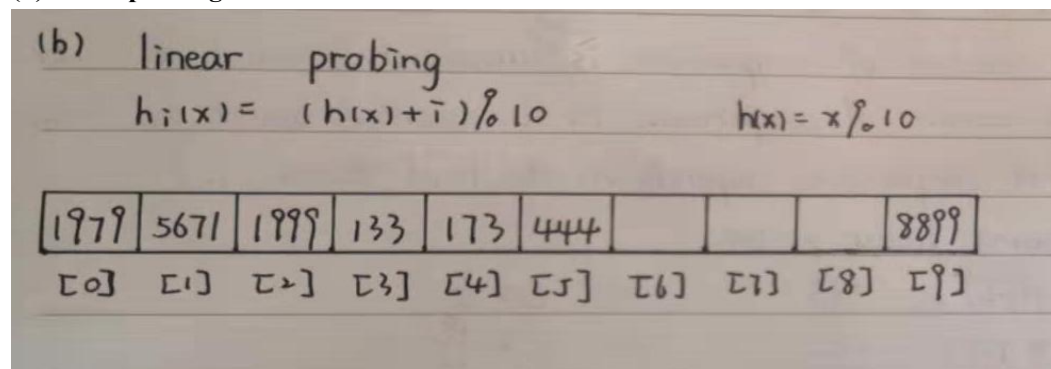 (b) linear probing
hi(x) = (h(x)+i)%10 h(x) = x%10
1979 5671 1999 133 173 444 8899
[0] [1] [2] [3] [4] [5] [6] [7] [8] [9]